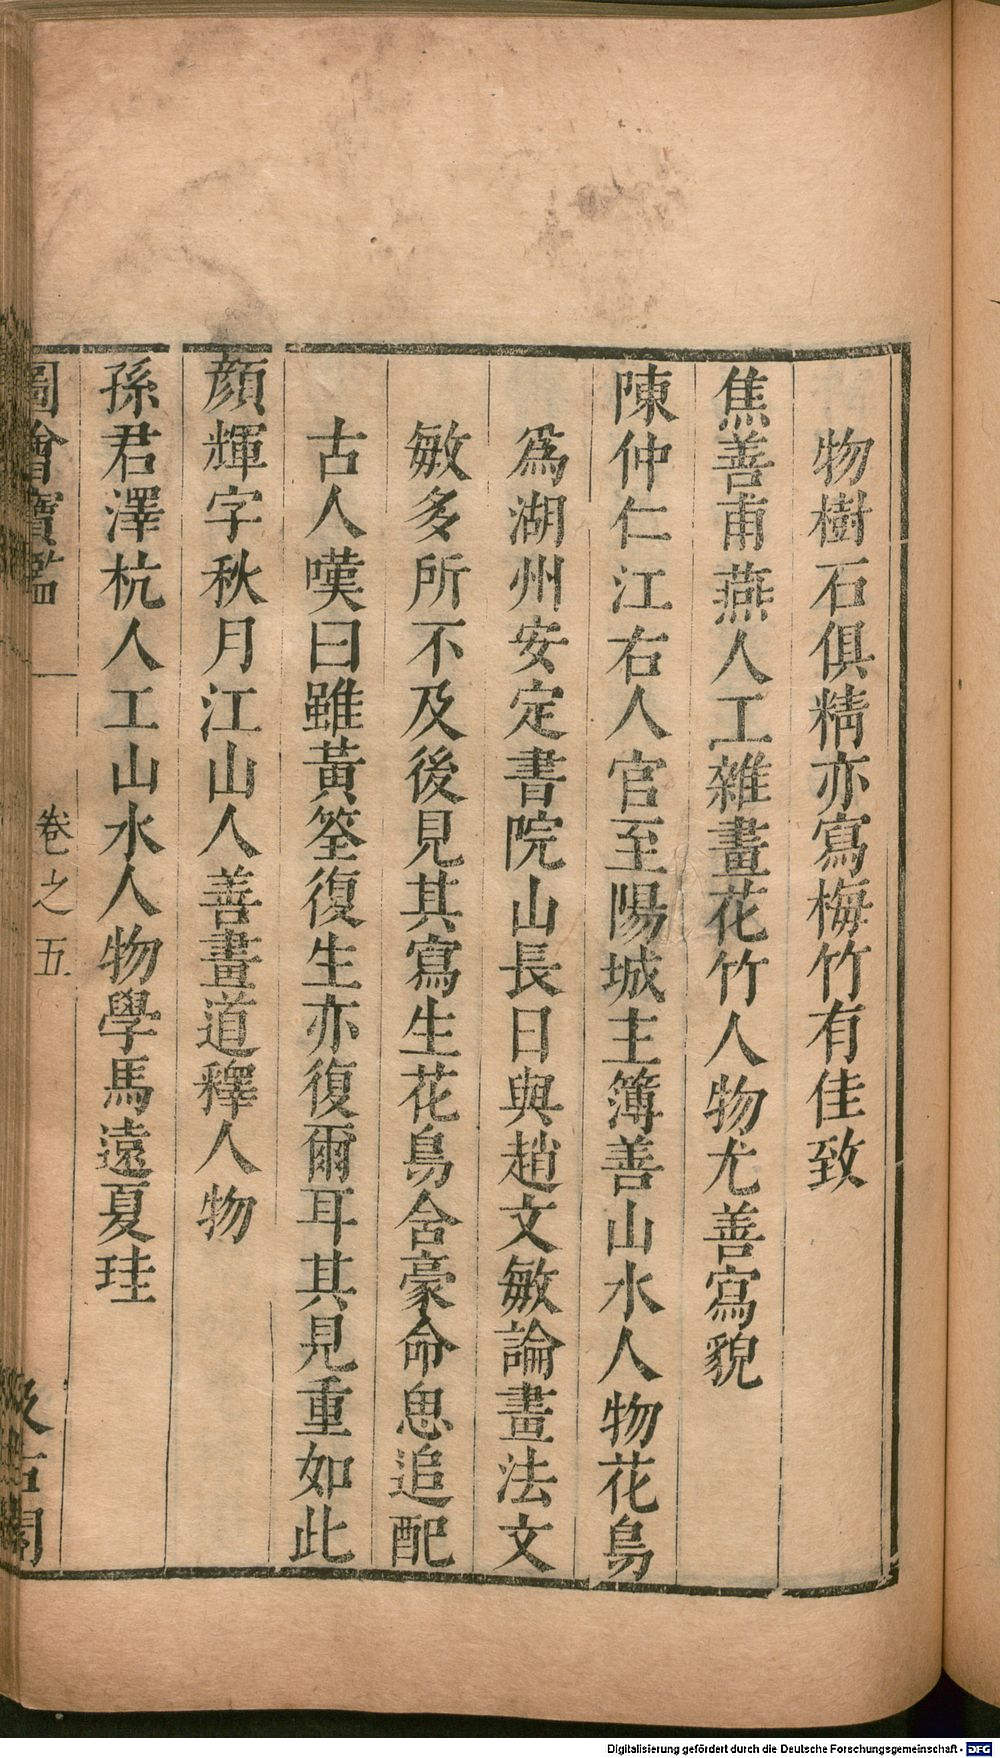 物樹石俱精亦寫梅竹有佳致
焦善甫燕人工雜畫花竹人物尤善寫貌
陳仲仁江右人官至陽城主簿善山水人物花鳥
爲湖州安定書院山長日與趙文敏論畫法文
敏多所不及後見其寫生花鳥含豪命思追配
古人嘆曰雖黃筌復生亦復爾耳其見重如此
顏輝字秋月江山人善畫道釋人物
孫君澤杭人工山水人物學馬遠夏珪
圖繪寶鑑 卷之五 汲古閣
Digitalisierung gefördert durch die Deutsche Forschungsgemeinschaft - DFG